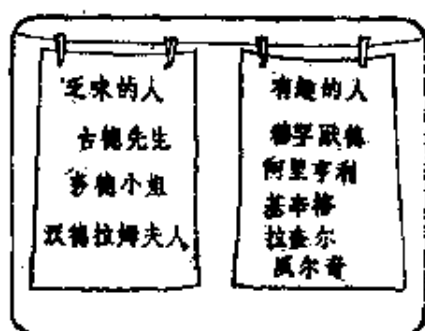 乏味的人
古德先生
莎德小姐
汉德拉姆夫人
有趣的人
德孚跃德
阿里亨利
基辛格
拉查尔
凤尔奇